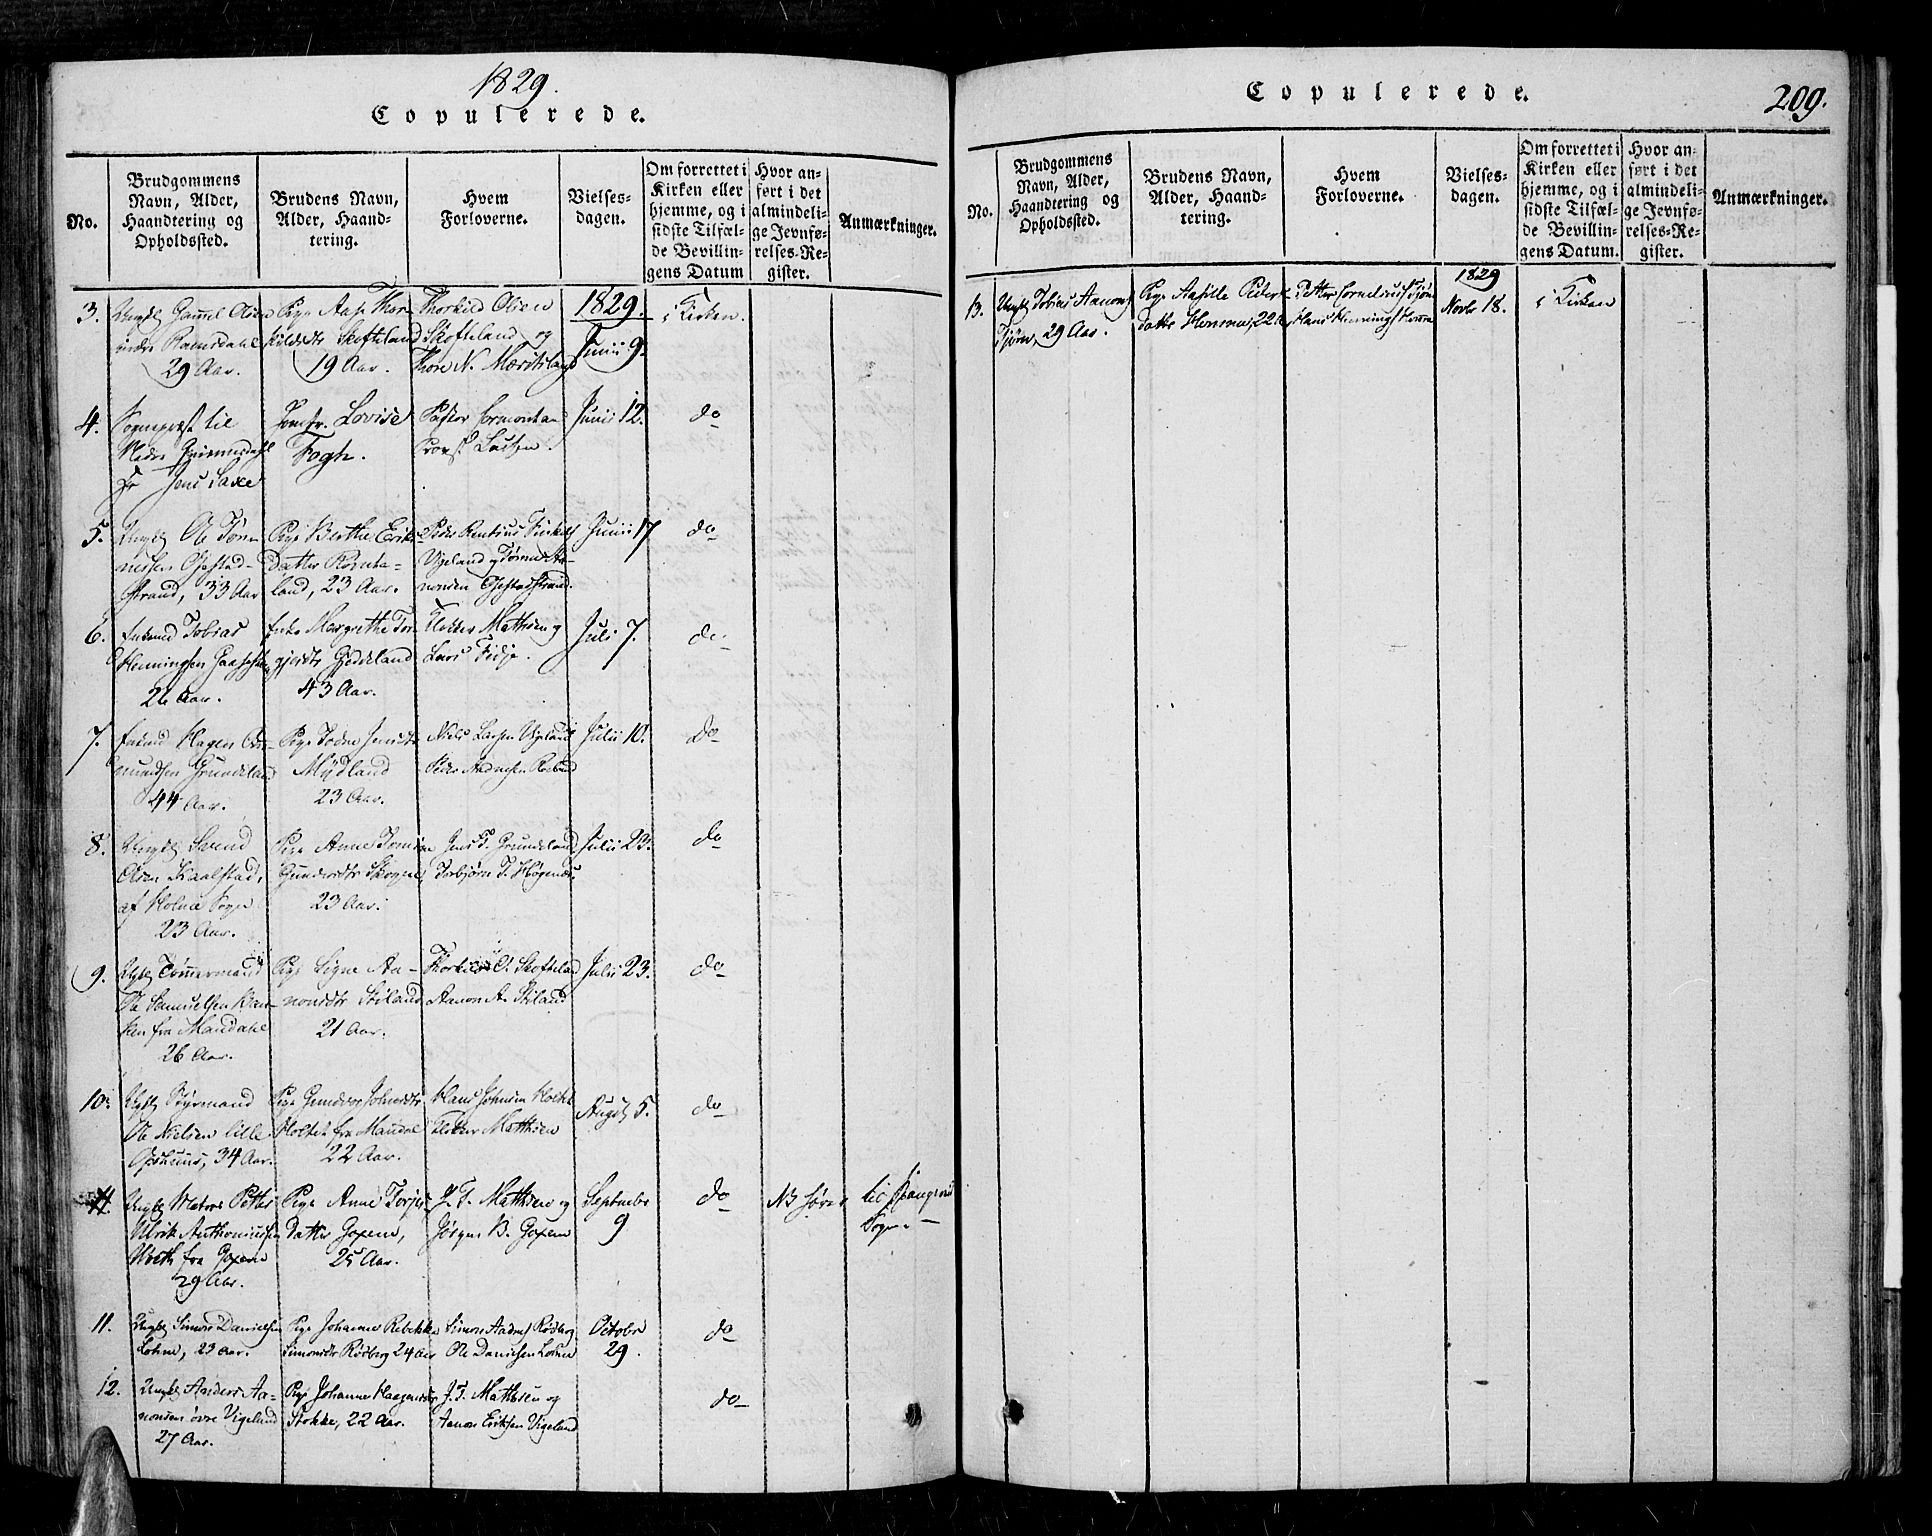 1829.
Copulerede.
No.
Brudgommens
Navn, Alder,
Haandtering og
Opholdssted.
Brudens Navn,
Alder, Haand-
tering.
Hvem
Forloverne.
Vielses-
dagen.
Om forrettet i
Kirken eller
hjemme, og i
sidste Tilfæl-
de Bevillin-
gens Datum
Hvor an-
ført i det
almindeli-
ge Jevnfø-
relses-Re-
gister.
Anmærkninger.
3.
Ungkl Gamel Olsen
indre Ramsdahl
29 Aar.
Pige Aase Thor-
kildsdtr Skofteland
19 Aar.
Thorkild Olsen
Skofteland og
Thore N.
1829.
Junii 9.
i Kirken.
4.
Sogneprest til
Nedre
Hr Jens Saxe
Jomfr. Lovise
Fogh.
Pastor
Provst
Junii 12.
do
5.
Ungkl Ole Tøn-
nessen Gjestad-
strand, 33 Aar
Pige Berthe Eriks-
Datter
land, 23 Aar.
Peder
Vigeland og Tønnes Aa-
nonsen Gjestadstrand.
Junii 17
do
6.
Enkemd Tobias
Henningsen
Enke Margrethe Tor-
gjerdtr Gjeddeland
43 Aar.
Klokker Mathsen og
Lars Fidje.
Juli 7.
do.
7.
Enkmd Hagen
mundsen Grundeland
44 Aar.
Pige Todne Jensdtr
Mydland
23 Aar.
Niels Larsen Vigeland
Peder Aadnesen
Julii 10.
do
8.
Ungkl Svend
Olsen Kaalstad,
af Holme Sogn
23 Aar.
Pige Anne Tomine
Gundersdtr
23 Aar.
Jens T. Grundeland,
Torbjørn T. Høgenæs
Julii 23.
do
9.
Ungkl Tømmermand
Ole Samuelsen
fra Mandahl
26 Aar.
Pige Signe Aa-
nonsdtr Stiland
21 Aar.
Thorkild O. Skofteland
Aanon A. Stiland
Julii 23.
do
10.
Ungkl Styrmand
Ole Nielsen lille
Opshuus, 34 Aar.
Pige Gunder Johnsdtr
Holtet fra Mandal
22 Aar.
Hans Johnsen Holte
Klokker Matthisen
Augst 5.
do
11.
Ungkl Matros Petter
Ulrik Anthoniussen
Wroth fra
29 Aar.
Pige Anne Torjes-
Datter
25 Aar.
J. T. Matthsen og
Jørgen B.
Septembr
9
do
NB hører
til
Sogn. —
11.
Ungkl Simon Danielsen
Lohne, 23 Aar.
Pige Johanne Rebekke
Simonsdtr Rødberg 24 Aar
Simon Aadnes Rødberg
Ole Danielsen Lohne
Octobr
29.
do
12.
Ungkl Anders Aa-
nonsen øvre Vigeland
27 Aar.
Pige Johanne Haagensdtr
Stokke, 22 Aar.
J. T. Mathisen og
Aanon Eriksen Vigeland
do
Copulerede.
209.
No.
Brudgommens
Navn, Alder,
Haandtering og
Opholdssted.
Brudens Navn,
Alder, Haand-
tering.
Hvem
Forloverne.
Vielses-
dagen.
Om forrettet i
Kirken eller
hjemme, og i
sidste Tilfæl-
de Bevillin-
gens Datum.
Hvor an-
ført i det
almindeli-
ge Jevnfø-
relses-Re-
gister.
Anmærkninger.
13.
Ungkl Tobias Aanons
Tjørn, 29 Aar.
Pige Aasille Peders
datter Homme, 22 Aar
Petter Cornelius Tjørn
Hans Henning Homme
1829
Novbr 18.
i Kirken